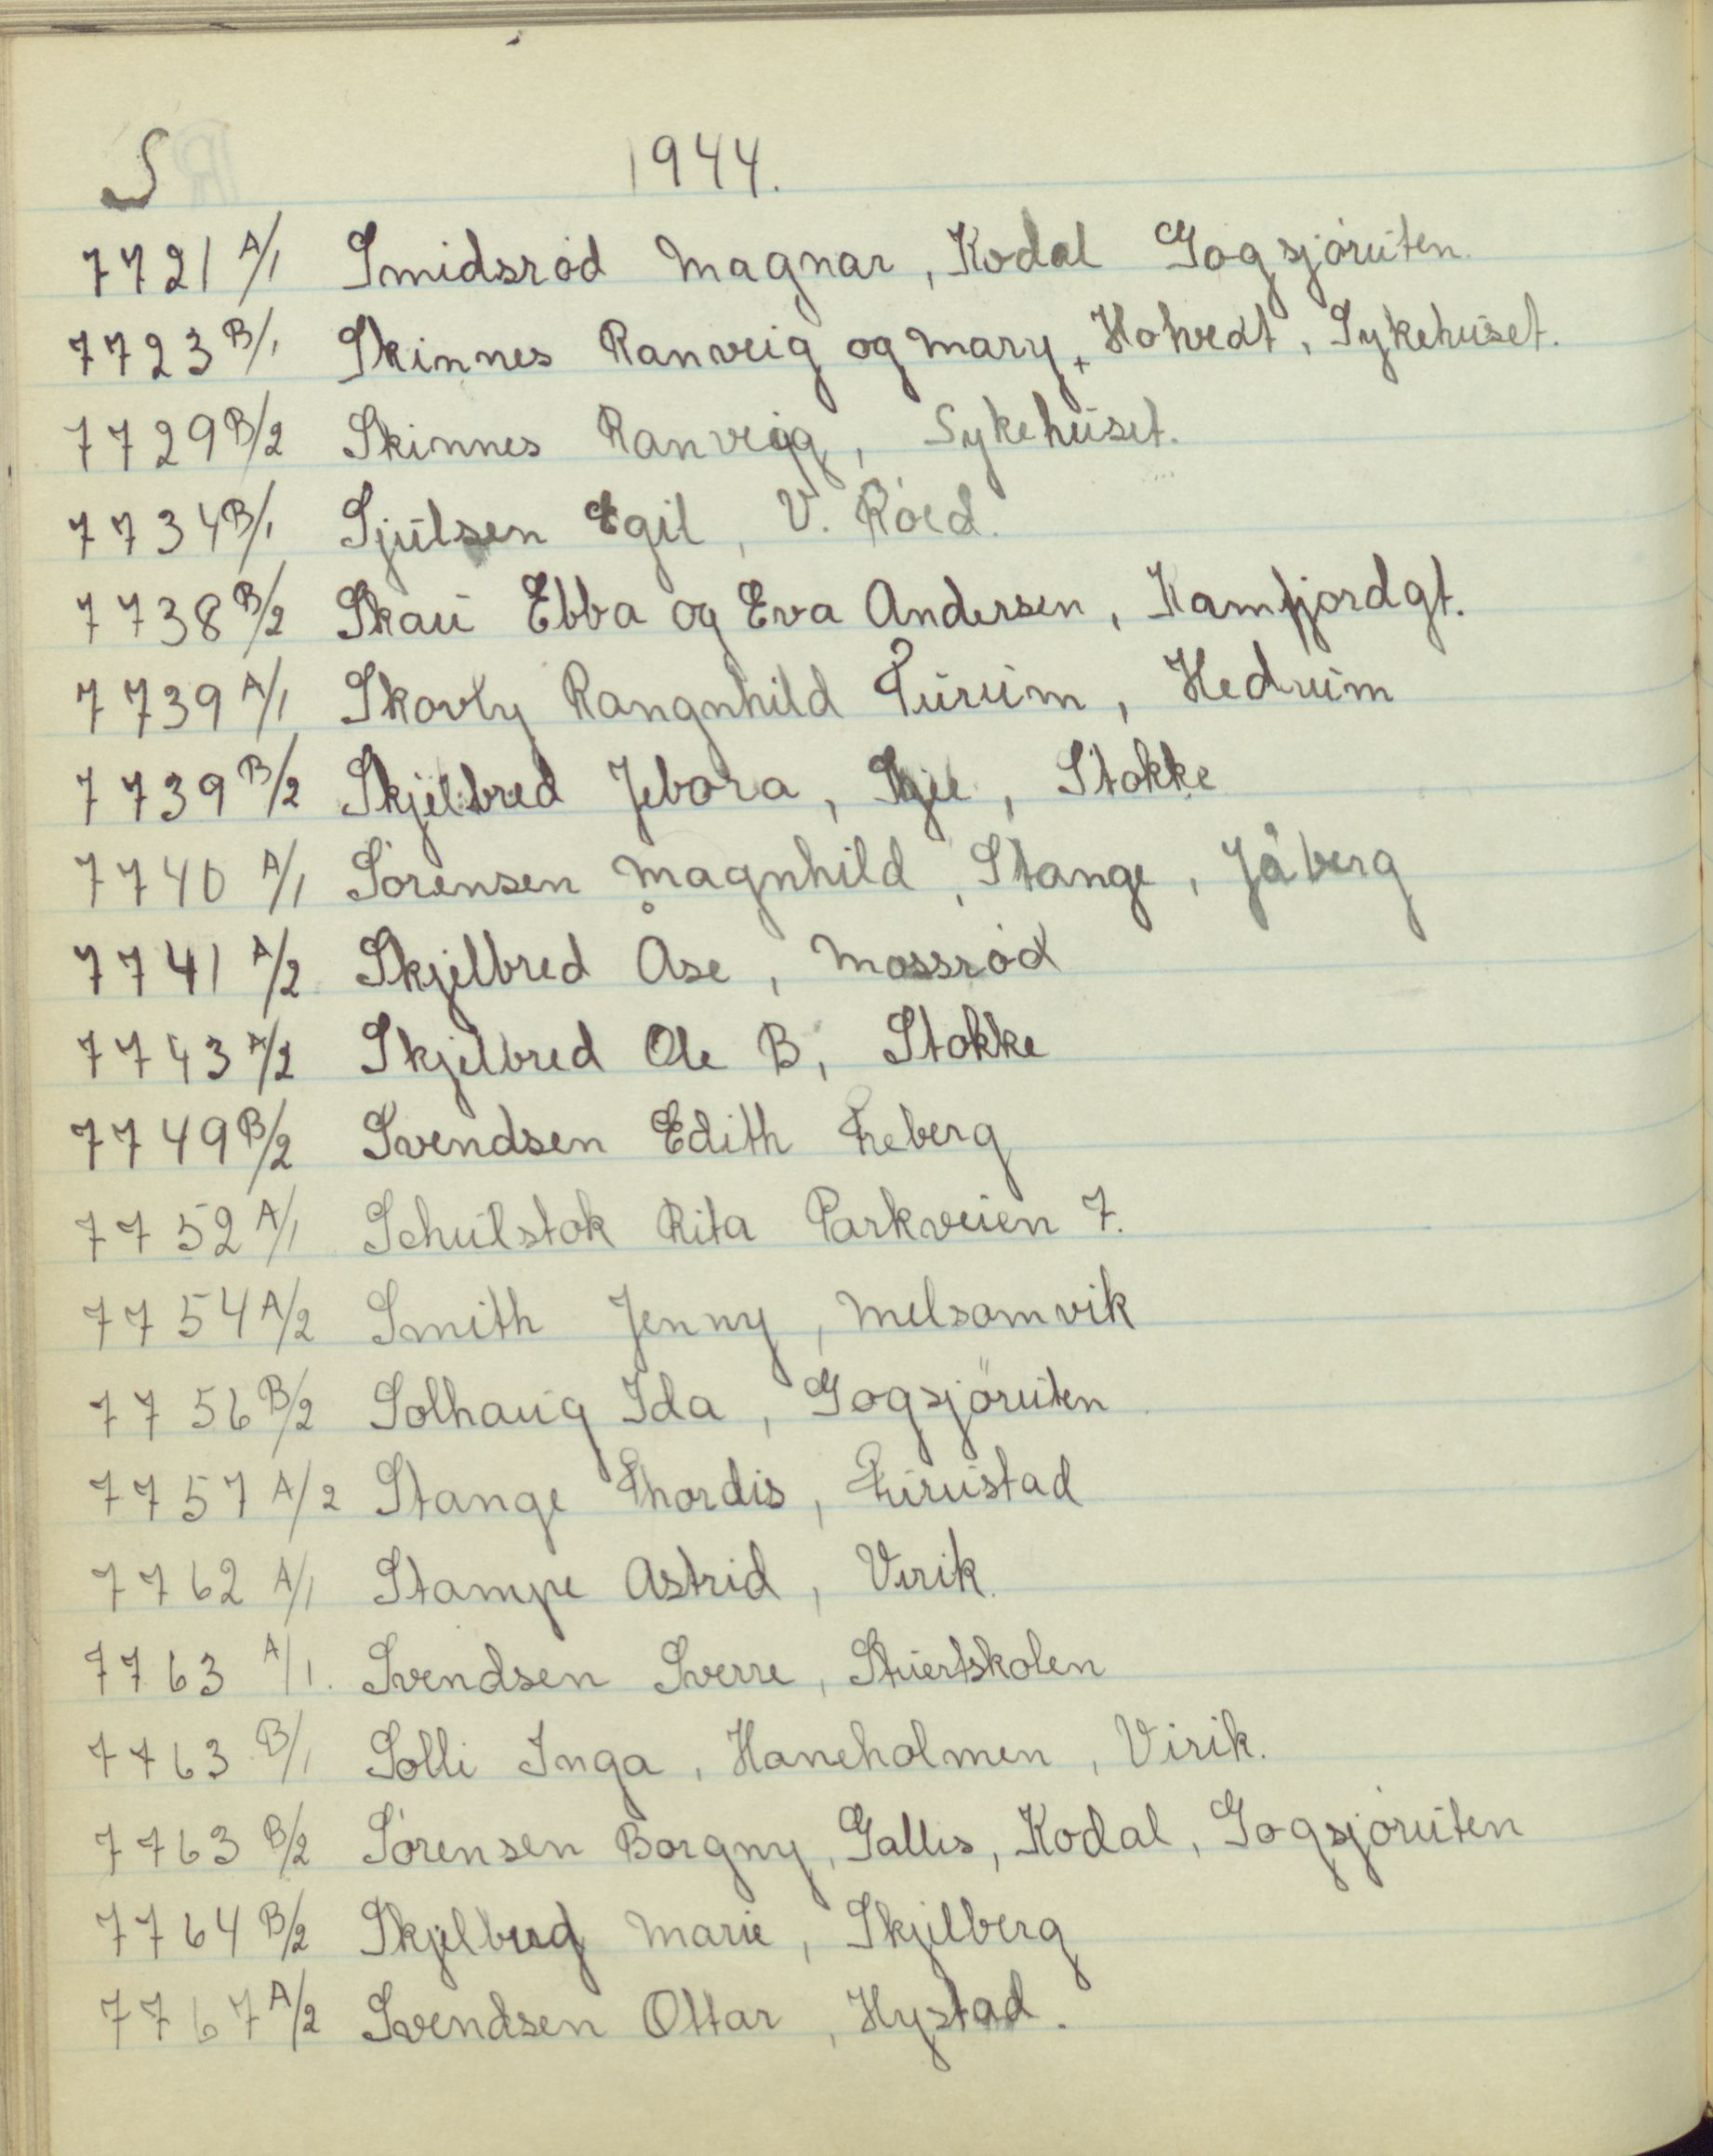 S 1944.
7721 A/1 Smidsrød Magnar, Kodal Gogsjøruten.
7723 B/1 Skinnes Ranveig og Mary, Hotvedt, Sykehuset.
7729 B/2 Skinnes Ranveig, Sykehuset.
7734 B/1 Sjulsen Egil, V. Røed.
7738 B/2 Skau Ebba og Eva Andersen, Kamfjordgt.
7739 A/1 Skovly Rangnhild Furum, Hedrum
7739 B/2 Skjelbred Jebora, Stokke
7740 A/1 Sørensen Magnhild, Stange, Jåberg
7741 A/2 Skjelbred Åse, Mossrød
7743 A/2 Skjelbred Ole B, Stokke
7749 B/2 Svendsen Edith Freberg
7752 A/1 Schulstok Rita Parkveien 7.
7754 A/2 Smith Jenny, Melsomvik
7756 B/2 Solhaug Ida, Gogsjøruten
7757 A/2 Stange Thordis, Furustad
7762 A/1 Stampe Astrid, Virik.
7763 A/1. Svendsen Sverre, Stuertskolen
7763 B/1 Solli Inga, Haneholmen, Virik.
7763 B/2 Sørensen Borgny, Gallis, Kodal, Gogsjøruten
7764 B/2 Skjelbred Marie, Skjelberg
7767 A/2 Svendsen Ottar, Hystad.